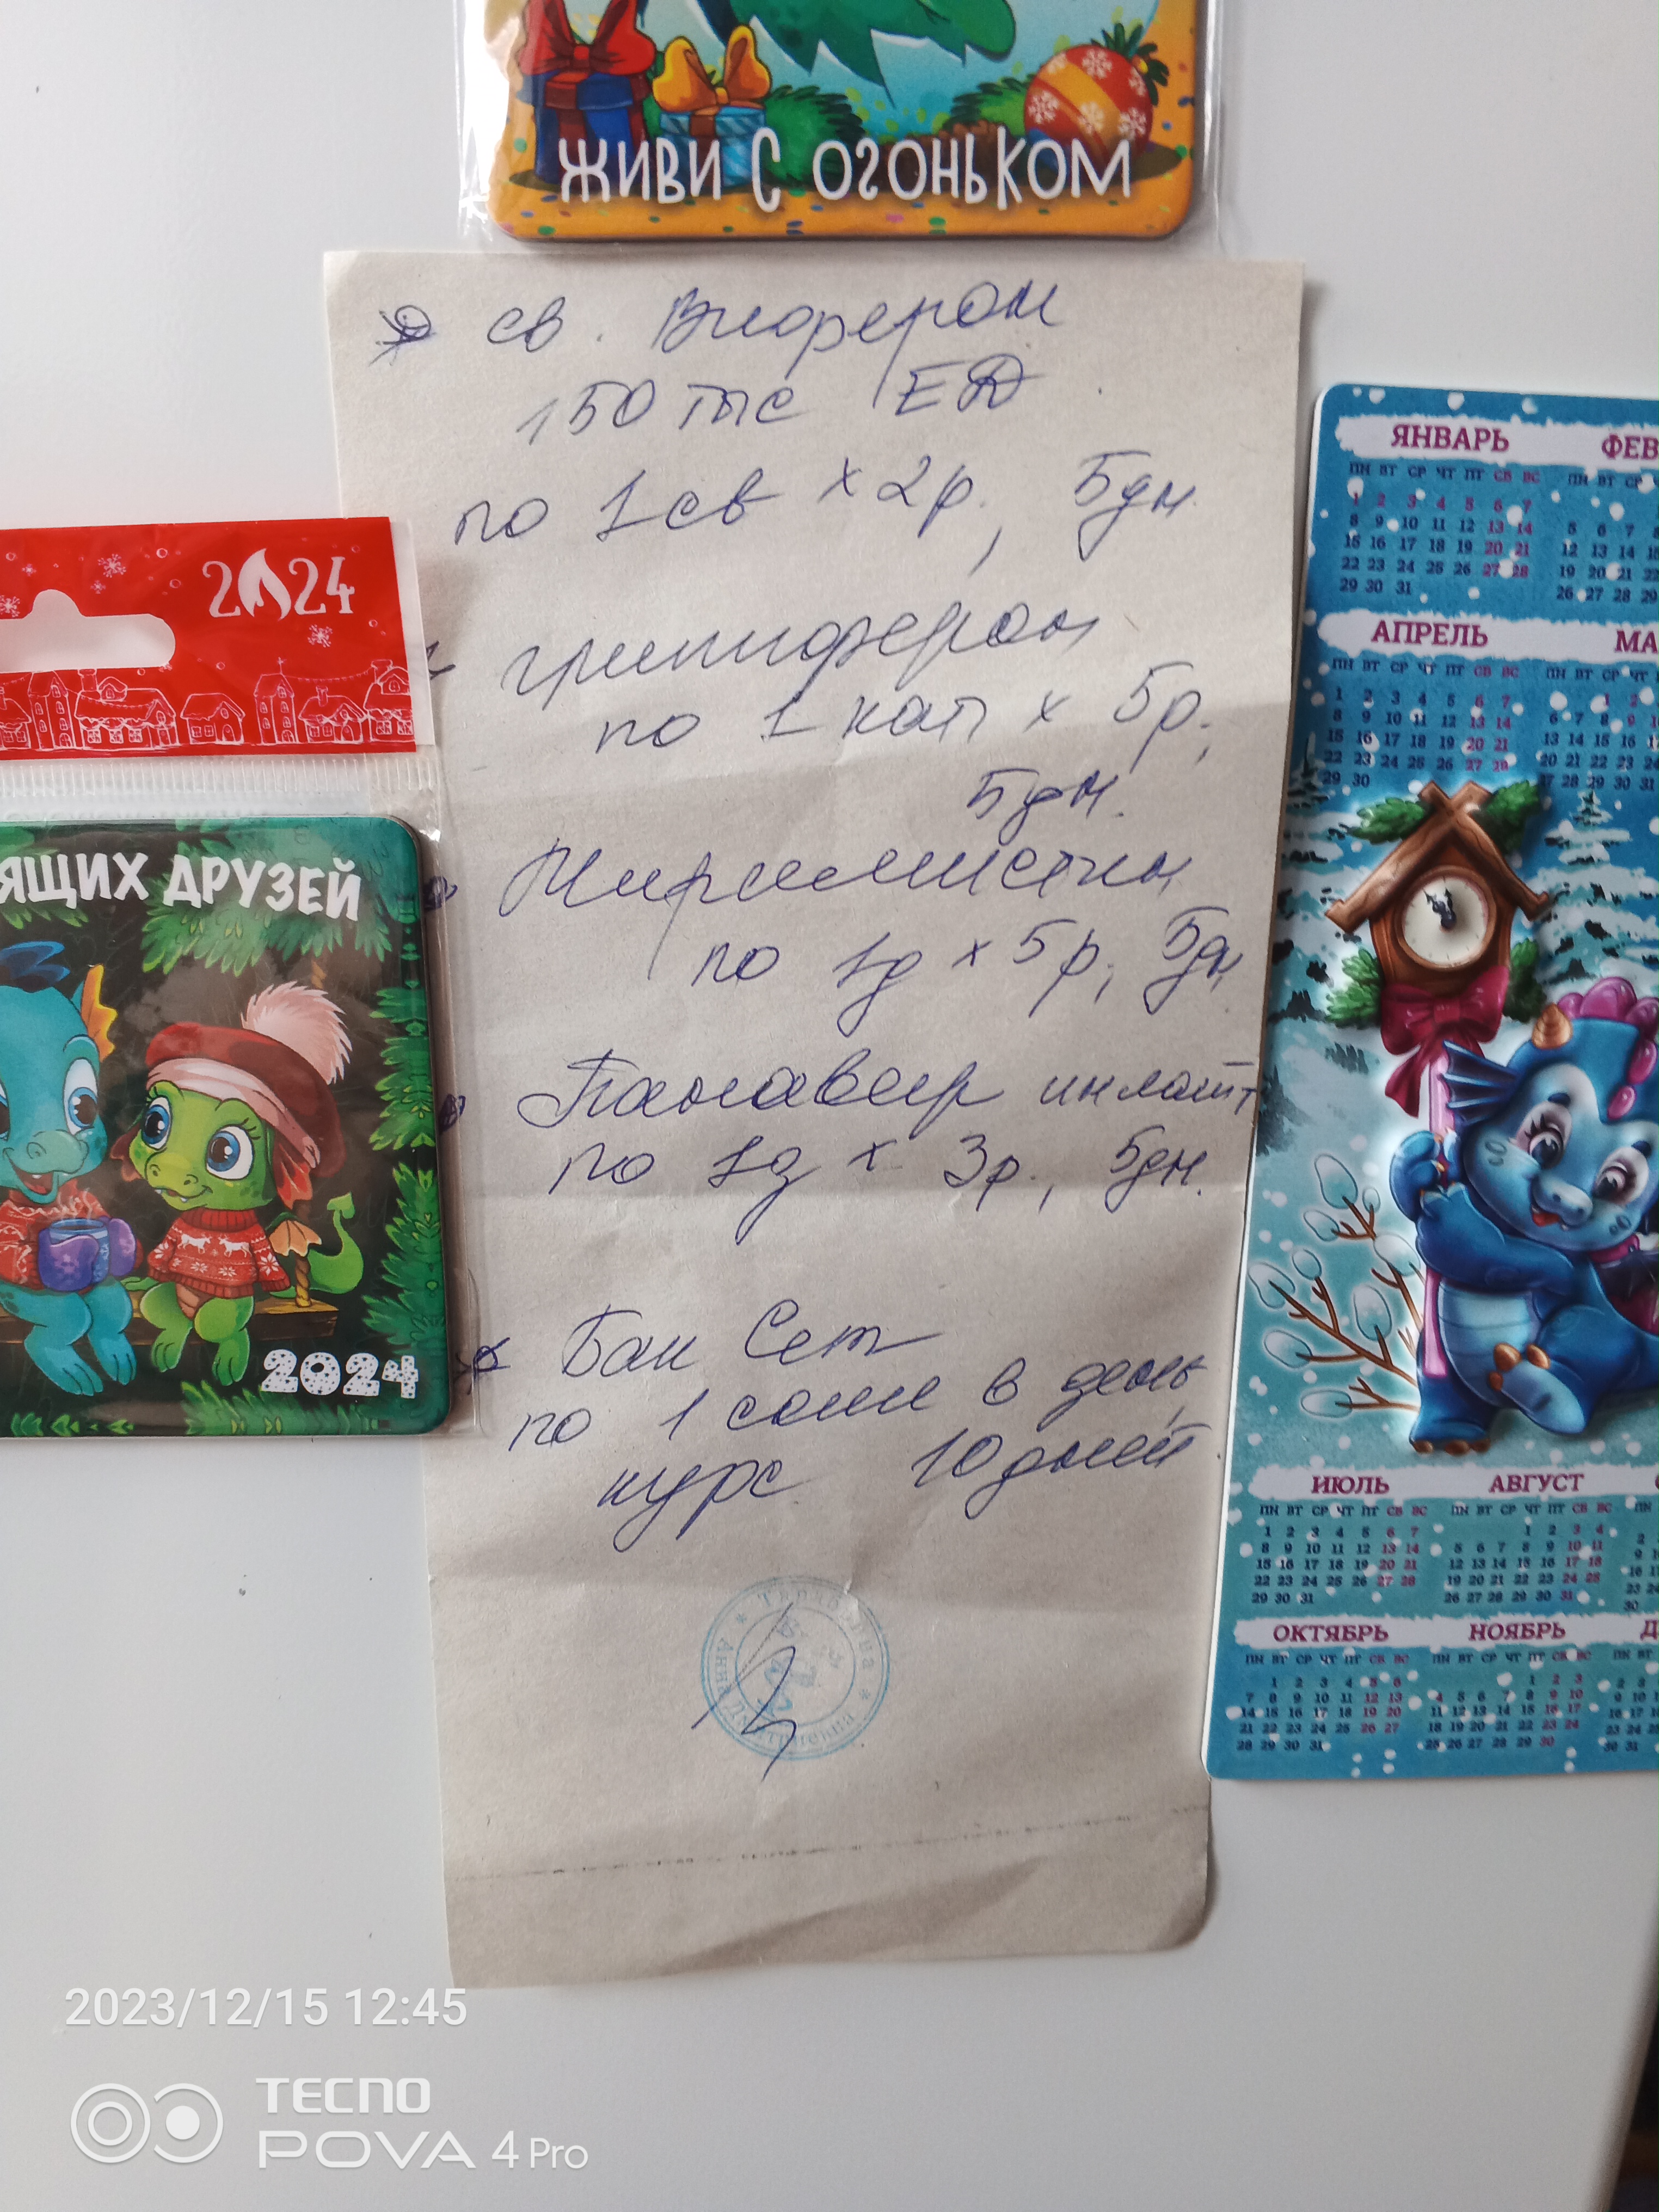 ЖИВИ С ОГОНЬКОМ
св. Виферон
150 тыс ЕД
по 1 св х 2 р., 5 дн.
гриппферон
по 1 кап х 5 р.,
5 дн.
Мирамистин
по 1 д х 5 р, 5 дн
Панавир инлайт
по 1 д х 3 р., 5 дн.
Бак Сет
по 1 саше в день
курс 10 дней
Анна Дмитриевна
2024
ЯЩИХ ДРУЗЕЙ
2024
ЯНВАРЬ ФЕВ
ПН ВТ СР ЧТ ПТ СБ ВС
1 2 3 4 5 6 7
8 9 10 11 12 13 14
15 16 17 18 19 20 21
22 23 24 25 26 27 28
29 30 31
АПРЕЛЬ МА
ПН ВТ СР ЧТ ПТ СБ ВС
1 2 3 4 5 6 7
8 9 10 11 12 13 14
15 16 17 18 19 20 21
22 23 24 25 26 27 28
29 30
ИЮЛЬ АВГУСТ
ПН ВТ СР ЧТ ПТ СБ ВС ПН ВТ СР ЧТ ПТ СБ ВС
1 2 3 4 5 6 7 1 2 3 4
8 9 10 11 12 13 14 5 6 7 8 9 10 11
15 16 17 18 19 20 21 12 13 14 15 16 17 18
22 23 24 25 26 27 28 19 20 21 22 23 24 25
29 30 31 26 27 28 29 30 31
ОКТЯБРЬ НОЯБРЬ Д
ПН ВТ СР ЧТ ПТ СБ ВС ПН ВТ СР ЧТ ПТ СБ ВС
1 2 3 4 5 6 1 2 3
7 8 9 10 11 12 13 4 5 6 7 8 9 10
14 15 16 17 18 19 20 11 12 13 14 15 16 17
21 22 23 24 25 26 27 18 19 20 21 22 23 24
28 29 30 31 25 26 27 28 29 30
2023/12/15 12:45
TECNO
POVA 4 Pro